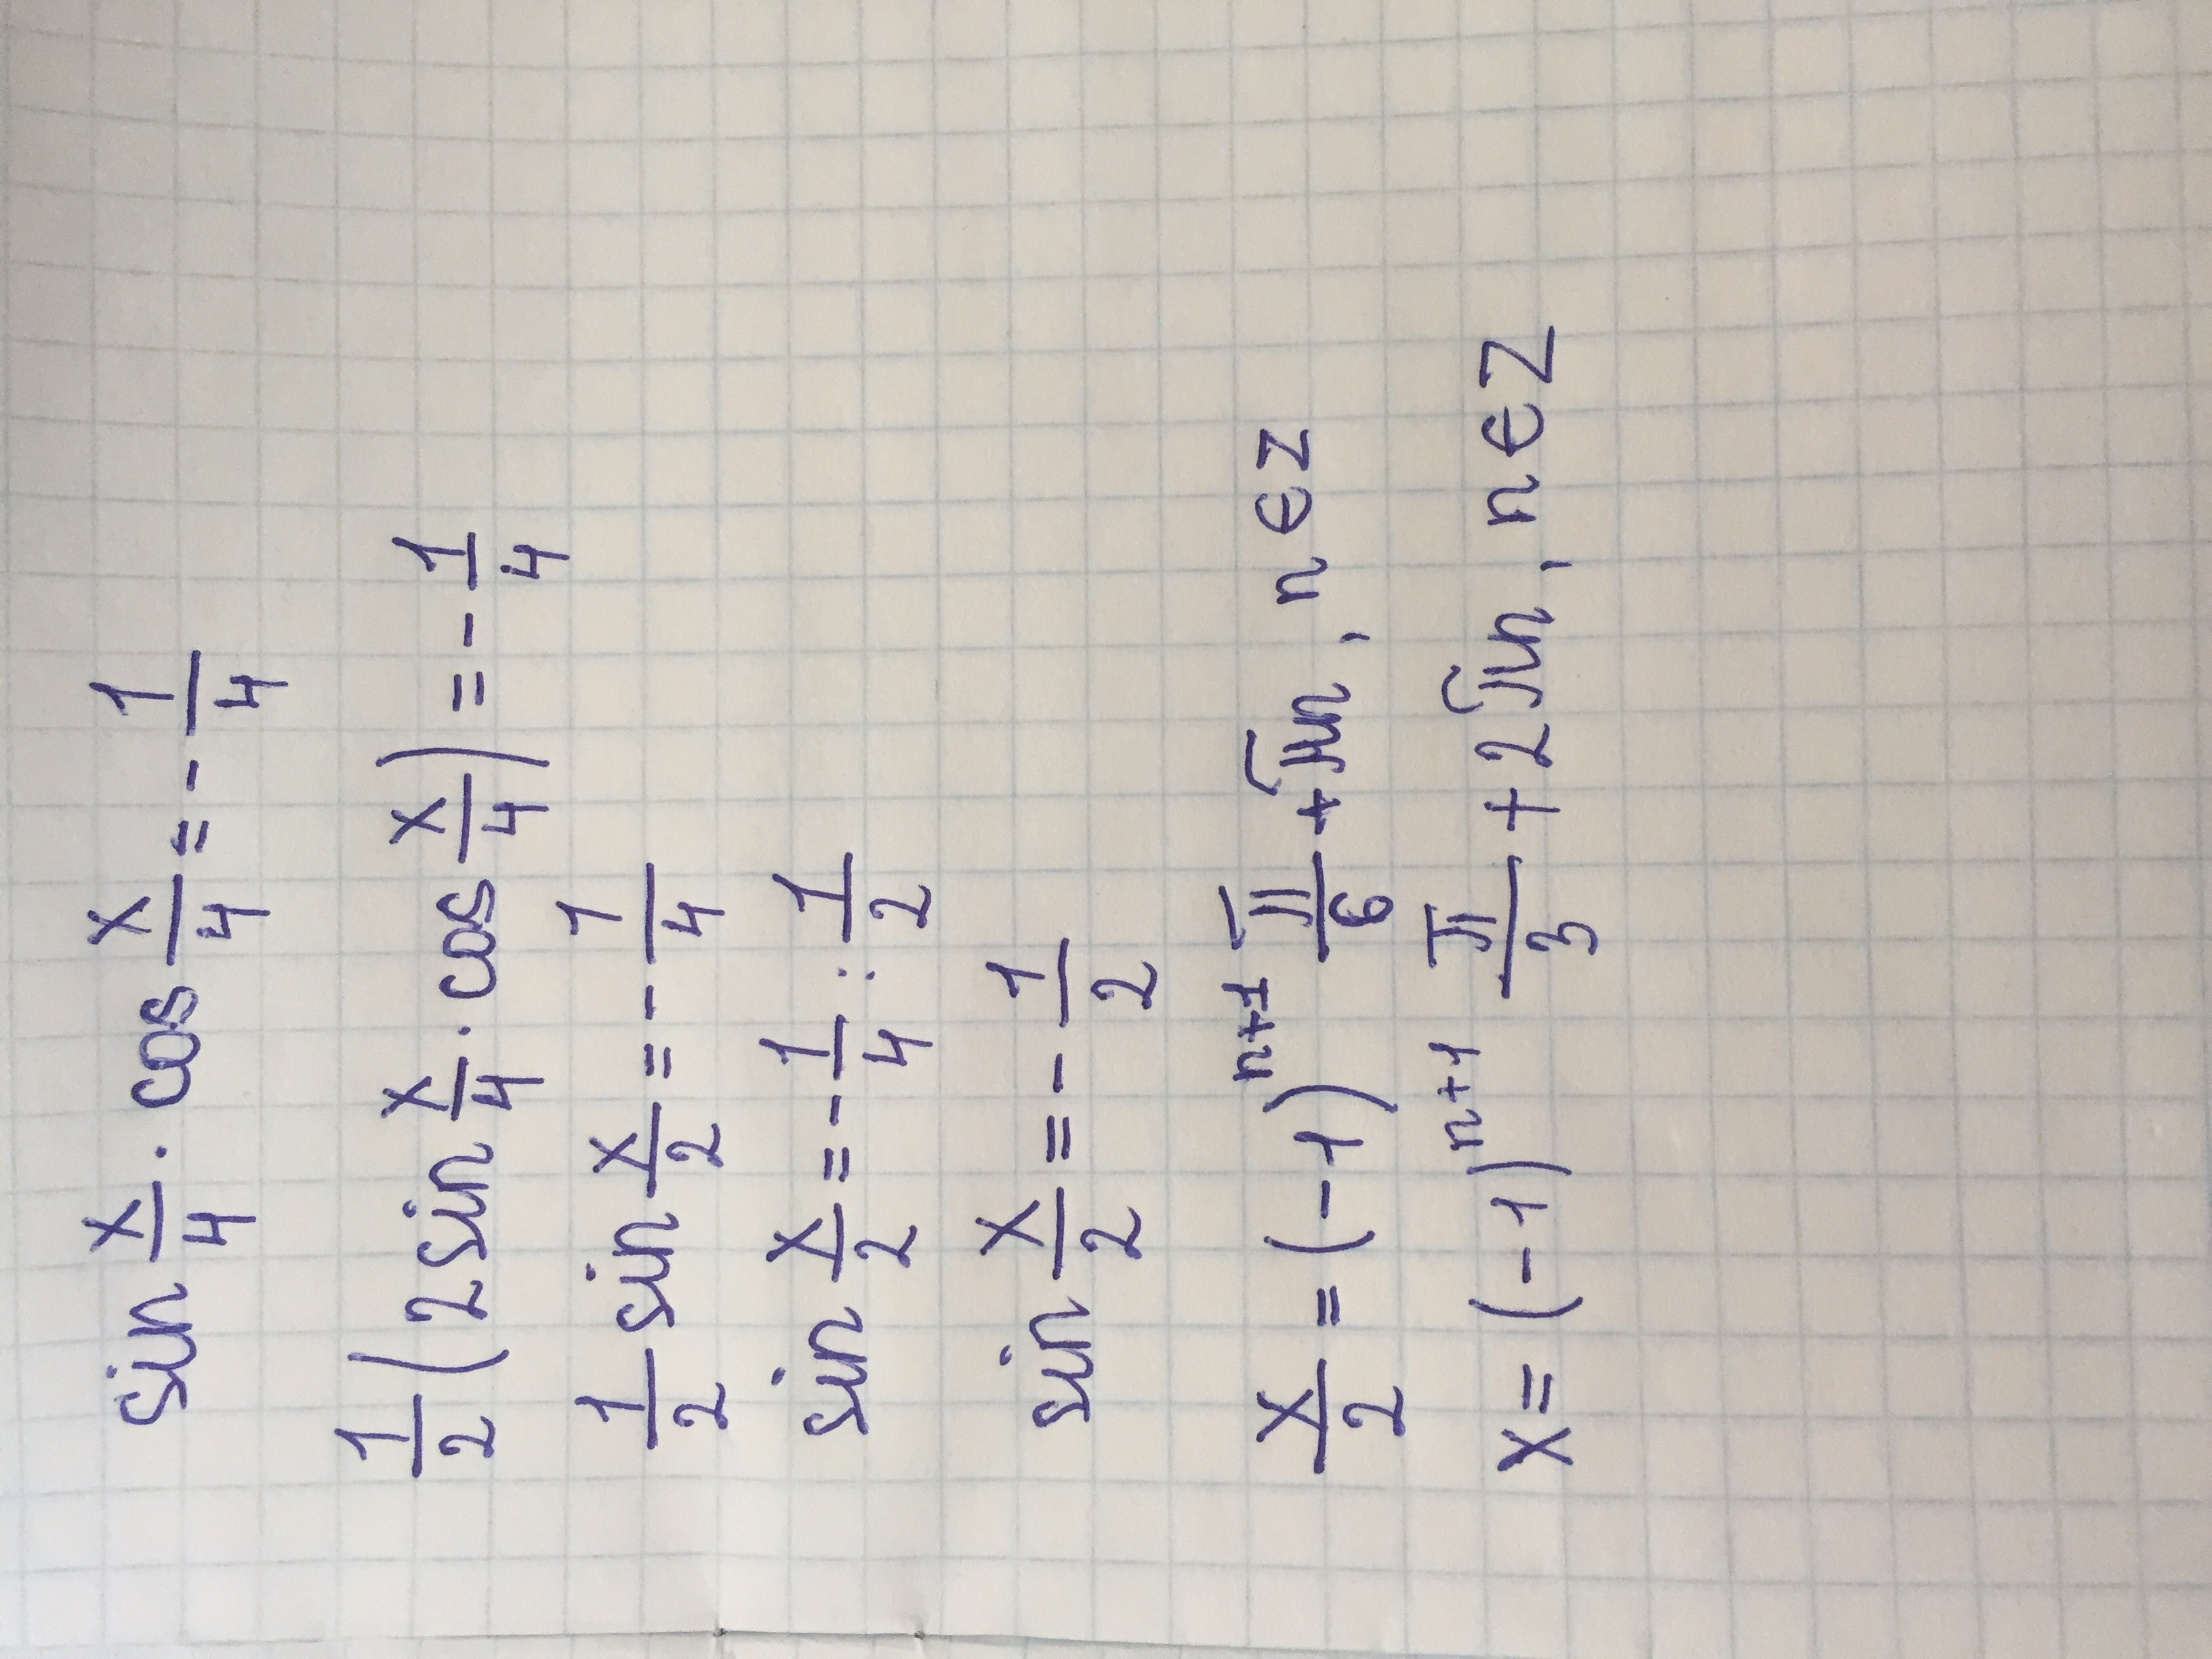 sin x/4 · cos x/4 = - 1/4
1/2 (2 sin x/4 · cos x/4) = - 1/4
1/2 sin x/2 = - 1/4
sin x/2 = - 1/4 : 1/2
sin x/2 = - 1/2
x/2 = (-1)^(n+1) π/6 + πn, n ∈ Z
x = (-1)^(n+1) π/3 + 2πn, n ∈ Z